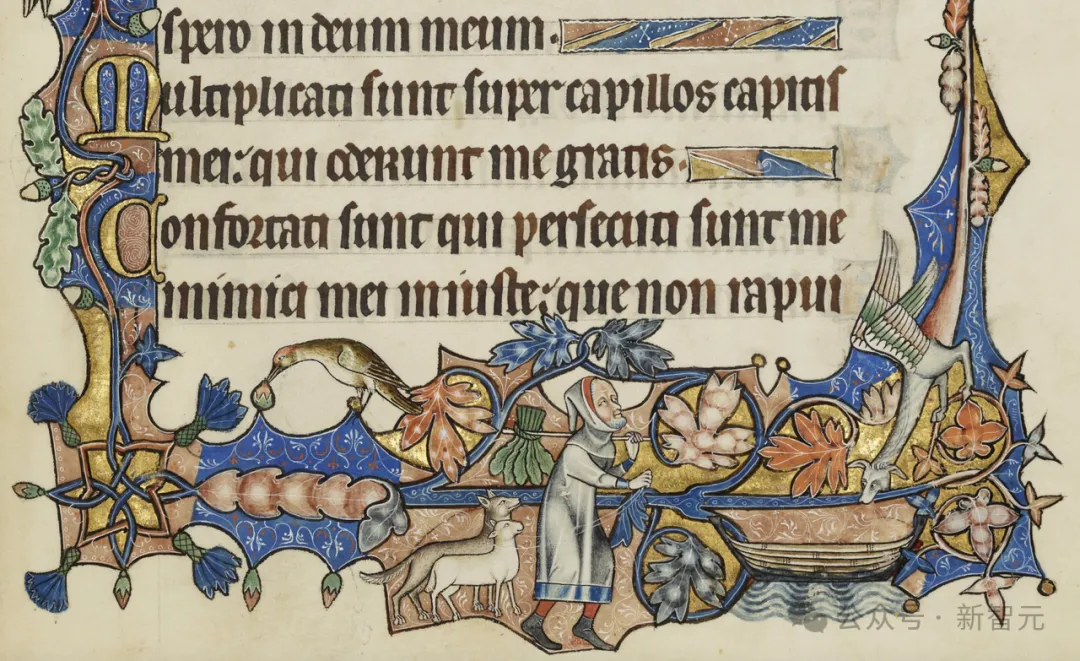 spero in deum meum.
Multiplicati sunt super capillos capitis
mei: qui oderunt me gratis.
Confortati sunt qui persecuti sunt me
inimici mei iniuste: que non rapui
公众号·新智元